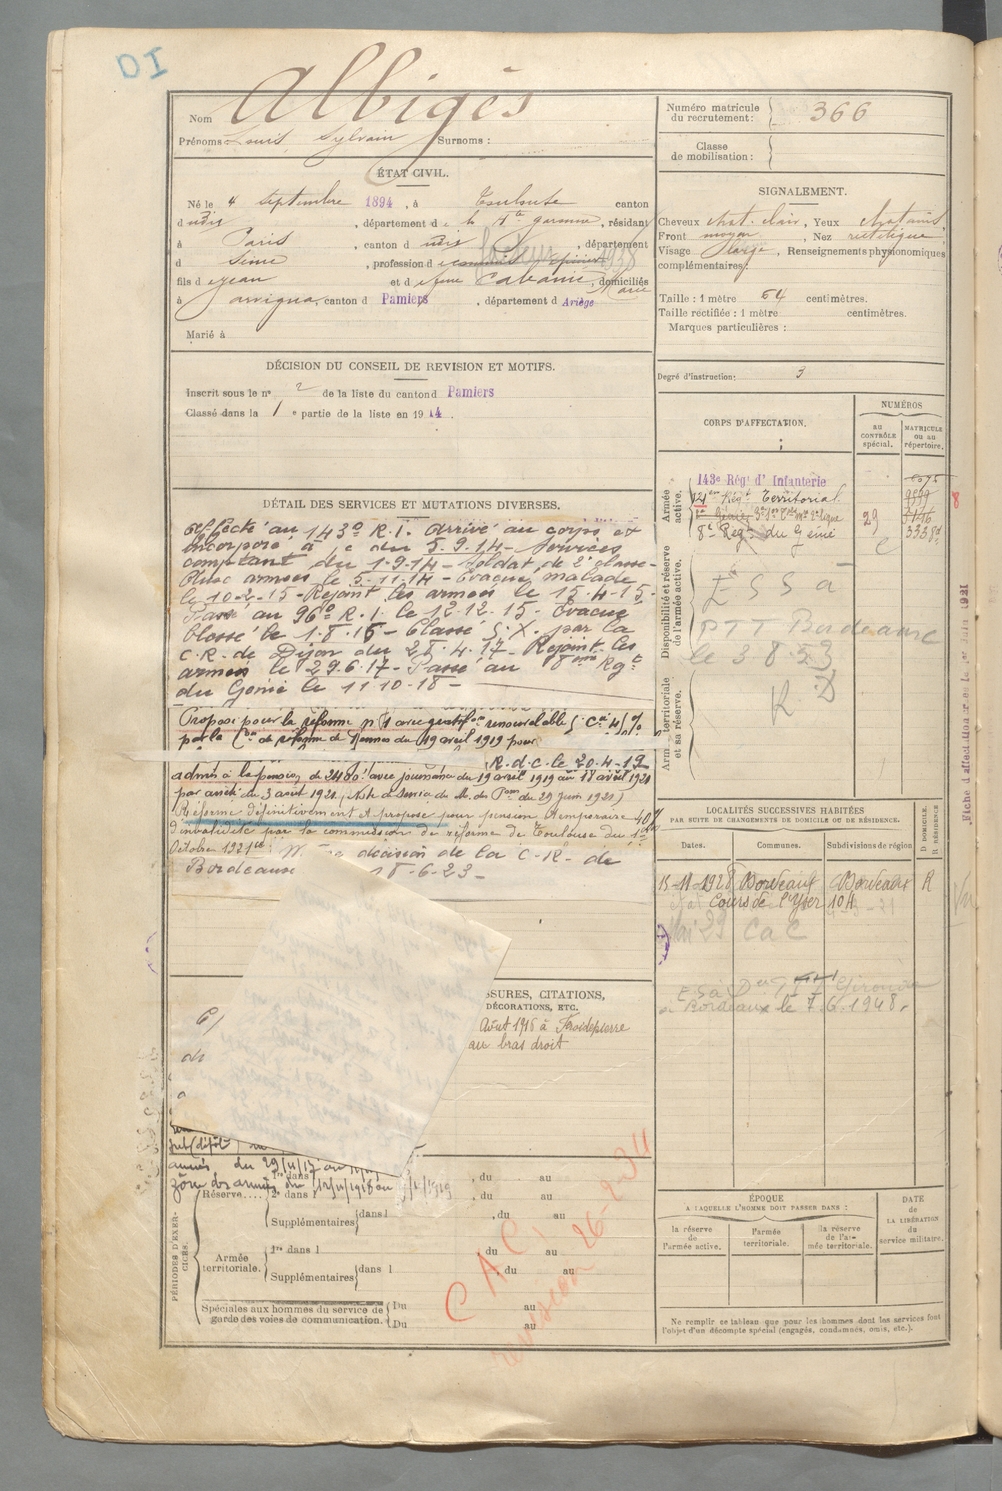 DI
Nom Albigès
Prénoms Louis Sylvain Surnoms :
ÉTAT CIVIL.
Né le 4 septembre 1894, à Toulouse canton
dudit, département de la Hte Garonne, résidant
à Paris, canton dudit, département
d Seine, profession d
fils d Jean et d Cabanié Marie, domiciliés
à Arvigna, canton d Pamiers, département d Ariège
Marié à
DÉCISION DU CONSEIL DE REVISION ET MOTIFS.
Inscrit sous le n° 2 de la liste du canton d Pamiers
Classé dans la 1 e partie de la liste en 1914.
DÉTAIL DES SERVICES ET MUTATIONS DIVERSES.
Affecté au 143e R.I. Arrivé au corps et
incorporé à c du 5.9.14 - Services
comptant du 1-9-14 - Soldat de 2e classe -
Aux armées le 5-11-14 - Évacué malade
le 10-2-15 - Rejoint les armées le 15-4-15.
Passé au 96e R.I. le 12.12.15. Évacué
blessé le 1.8.16 - Classé S.X. par la
C.R. de Dijon du 25.4.17 - Rejoint les
armées le 29.6.17 - Passé au 8me Rgt
du Génie le 11-10-18 -
Proposé pour la réforme n° 1 avec gratifon renouvelable
par la Con de réforme de Rennes du 19 avril 1919 pour
R.d.C. le 20-4-19
admis à la pension de 2480f avec jouissance du 19 avril 1919 au 18 avril 1921
par arrêté du 3 août 1921 (Note de service du M. des Pons du 29 juin 1921)
Réformé définitivement et proposé pour pension temporaire 40%
d'invalidité par la commission de réforme de Toulouse du 1er
Octobre 1921
décision de la C.R. de
Bordeaux 18-6-23 -
SSURES, CITATIONS,
DÉCORATIONS, ETC.
Août 1916 à Froideterre
au bras droit
armées du 29/4/17 au
zône des armées du 12/11/1918 au
PÉRIODES D'EXERCICES.
Réserve.... 1re dans l , du au
2e dans l , du au
Supplémentaires dans l , du au
Armée territoriale. 1re dans l , du au
Supplémentaires dans l , du au
Spéciales aux hommes du service de garde des voies de communication. Du au
Du au
C A C
26-2-34
Numéro matricule du recrutement : 366
Classe de mobilisation :
SIGNALEMENT.
Cheveux chat. clair, Yeux chatains
Front moyen, Nez rectiligne
Visage large, Renseignements physionomiques
complémentaires :
Taille : 1 mètre 64 centimètres.
Taille rectifiée : 1 mètre centimètres.
Marques particulières :
Degré d'instruction : 3
CORPS D'AFFECTATION.
NUMÉROS
au CONTRÔLE spécial.
MATRICULE ou au répertoire.
Armée active.
143e Régt d'Infanterie
121eme Régt Territorial
8e Régt du Génie
29
8
Disponibilité et réserve de l'armée active.
E S S a
PTT Bordeaux
le 3 8.53
R D
Armée territoriale et sa réserve.
Fiche d'affectation
LOCALITÉS SUCCESSIVES HABITÉES
PAR SUITE DE CHANGEMENTS DE DOMICILE OU DE RÉSIDENCE.
Dates.
Communes.
Subdivisions de région
D. DOMICILE. R. RÉSIDENCE.
15-11-1928 Bordeaux Bordeaux R
Cours de l'Yser 104
Mai 29 CaC
ESa Gironde
Bordeaux le 7.6.1948.
ÉPOQUE
A LAQUELLE L'HOMME DOIT PASSER DANS :
la réserve de l'armée active.
l'armée territoriale.
la réserve de l'armée territoriale.
DATE de LA LIBÉRATION du service militaire.
Ne remplir ce tableau que pour les hommes dont les services font
l'objet d'un décompte spécial (engagés, condamnés, omis, etc.).